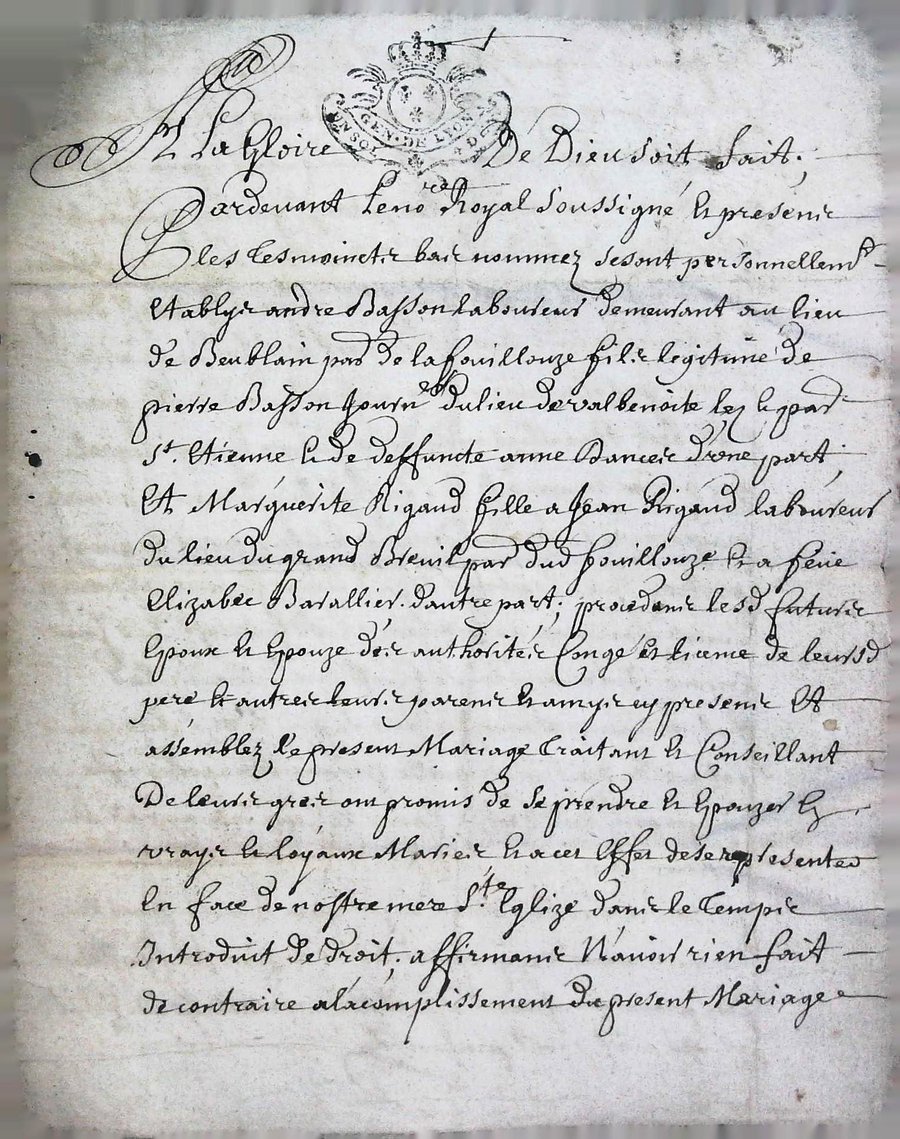 GEN. DE LYON
A La Gloire De Dieu soit fait.
Pardevant Le no.re Royal soussigné et presens
les tesmoincts bas nommez se sont personnellem.t
Etablys andre Basson laboureur demeurant au lieu
de Beublain par. de la fouillouze fils legitime de
pierre Basson Journ.er du lieu de valbenoite lez par.
S.t Etienne et de deffuncte anne Bancer d'vne part
Et Marguerite Rigaud fille a Jean Rigaud laboureur
du lieu du grand Breuil par. dud. fouillouze et a feüe
Elizabee Barallier d'autre part, procedants lesd futurs
Epoux et Epouze des authorités Congé et licence de leursd
pere et autres leurs parens et amys cy presens et
assemblez le present Mariage Traitant et Conseillant
De leurs gres ont promis de se prendre et Epouzer En
vrays et loyaux Maries et a cet Effet de se representer
En face de nostre mere S.te Eglize dans le temps
Introduit de droit, affirmants N'avoir rien fait
de contraire a lacomplissement du present Mariage